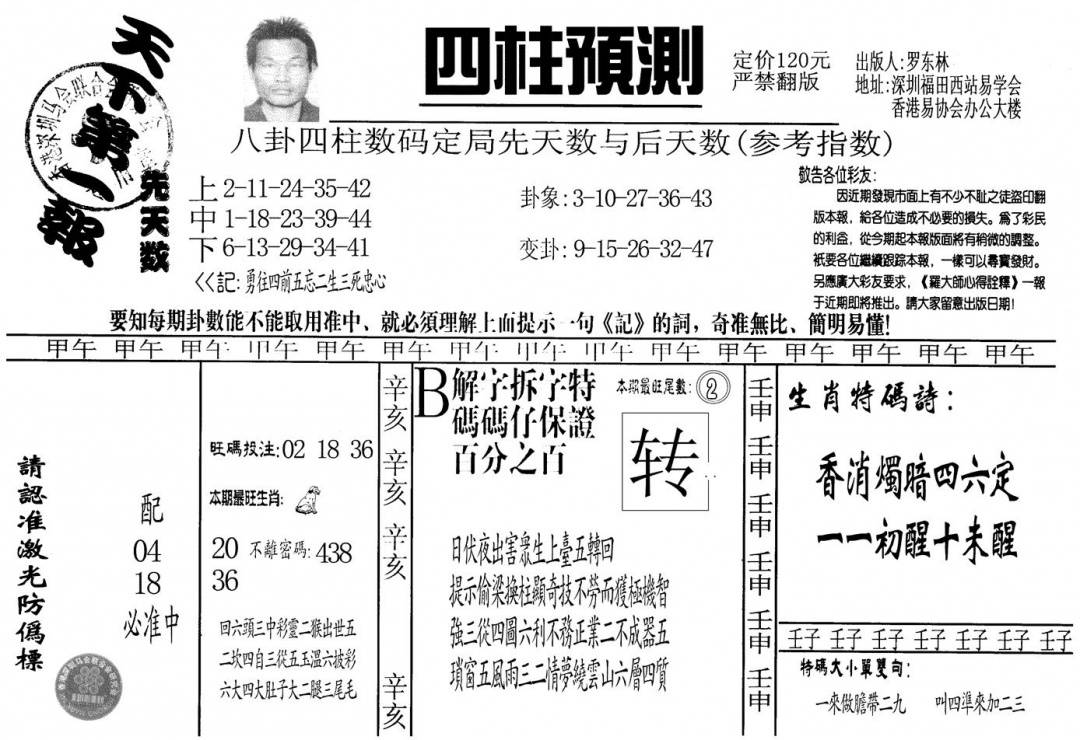 天下第一報
四柱預測
定价120元
严禁翻版
出版人:罗东林
地址:深圳福田西站易学会
香港易协会办公大楼
八卦四柱数码定局先天数与后天数(参考指数)
先天数
上2-11-24-35-42
中1-18-23-39-44
下6-13-29-34-41
<<記:勇往四前五忘二生三死忠心
卦象:3-10-27-36-43
变卦:9-15-26-32-47
敬告各位彩友:
因近期發現市面上有不少不耻之徒盜印翻
版本報，給各位造成不必要的損失。爲了彩民
的利益，從今期起本報版面將有稍微的調整。
衹要各位繼續跟踪本報，一樣可以尋寶發財。
另應廣大彩友要求，《羅大師心得詮釋》一報
于近期即將推出。請大家留意出版日期!
要知每期卦數能不能取用准中、就必須理解上面提示一句《記》的詞，奇准無比、簡明易懂!
甲午 甲午 甲午 甲午 甲午 甲午 甲午 甲午 甲午 甲午 甲午 甲午 甲午 甲午 甲午
請認准激光防僞標
配
04
18
必准中
旺碼投注:02 18 36
本期最旺生肖:
20 不離密碼:438
36
回六頭三中彩靈二猴出世五
二坎四自三從五玉溫六披彩
六大四大肚子大二腿三尾毛
辛亥
辛亥
辛亥
辛亥
B解字拆字特
碼碼仔保證
百分之百
本期最旺尾數:2
转
日伏夜出害衆生上臺五轉回
提示偷梁換柱顯奇技不勞而獲極機智
強三從四圖六利不務正業二不成器五
瑣窗五風雨三二情夢繞雲山六層四質
壬申
壬申
壬申
壬申
壬申
壬申
生肖特碼詩:
香消燭暗四六定
一一初醒十未醒
壬子 壬子 壬子 壬子 壬子 壬子 壬子
特碼大小單雙句:
一來做膽帶二九 叫四準來加二三